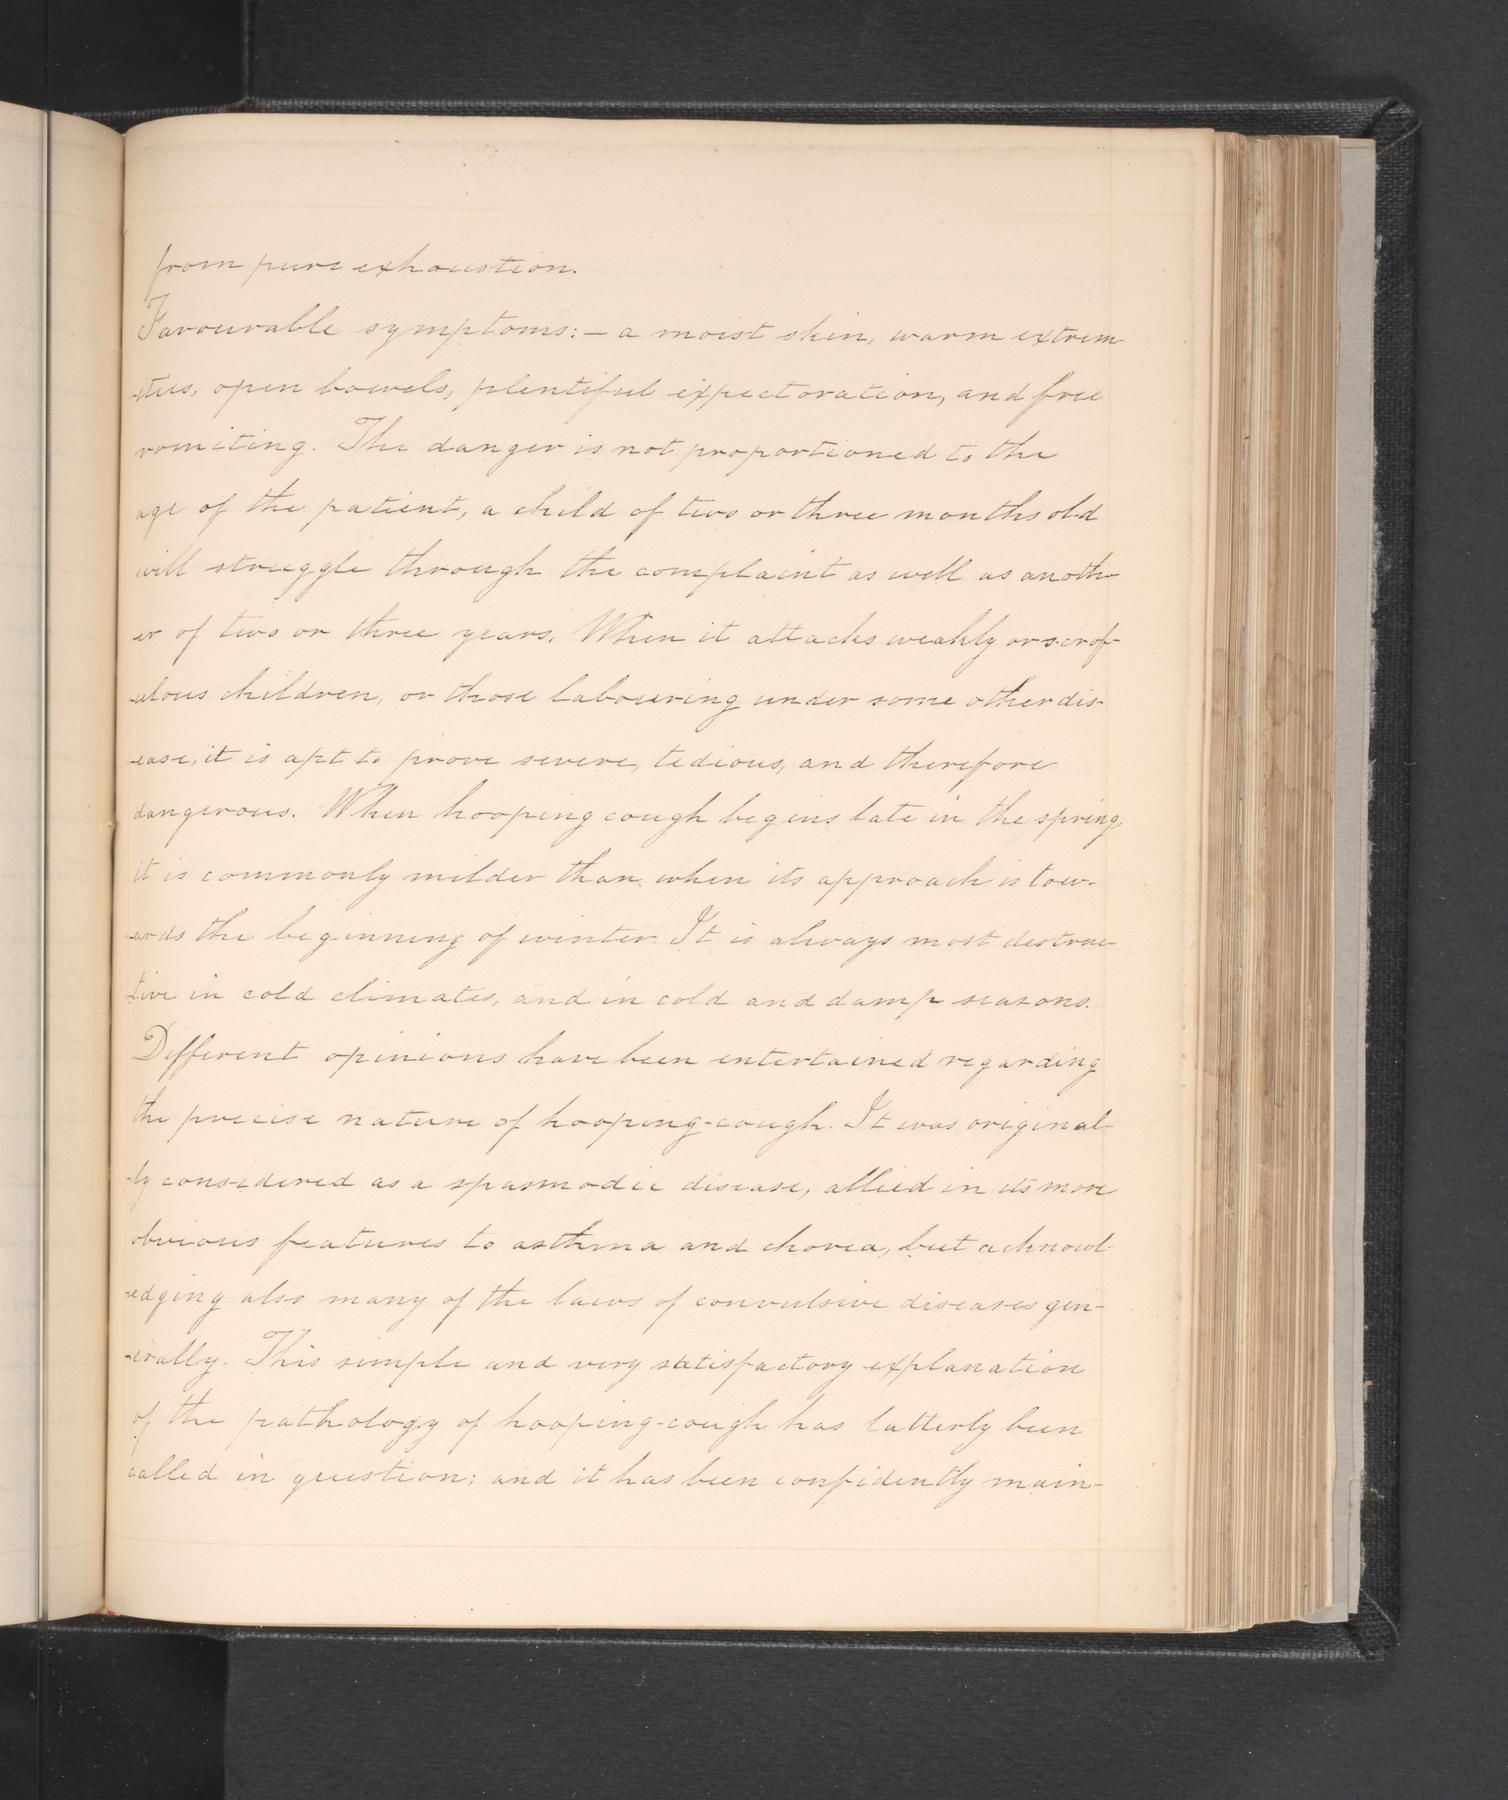 from pure exhaustion.
Favourable symptoms:— a moist skin, warm extrem
-ities, open bowels, plentiful expectoration, and free
vomiting. The danger is not proportioned to the
age of the patient, a child of two or three months old
will struggle through the complaint as well as anoth-
-er of two or three years. When it attacks weakly or scrof-
-ulous children, or those labouring under some other dis-
-ease, it is apt to prove severe, tedious, and therefore
dangerous. When hooping cough begins late in the spring,
it is commonly milder than when its approach is tow-
-ards the beginning of winter. It is always most destruc-
-tive in cold climates, and in cold and damp seasons.
Different opinions have been entertained regarding
the precise nature of hooping-cough. It was original-
-ly considered as a spasmodic disease, allied in its more
obvious features to asthma and chorea, but acknowl-
-edging also many of the laws of convulsive diseases gen-
-erally. This simple and very satisfactory explanation
of the pathology of hooping-cough has latterly been
called in question; and it has been confidently main-